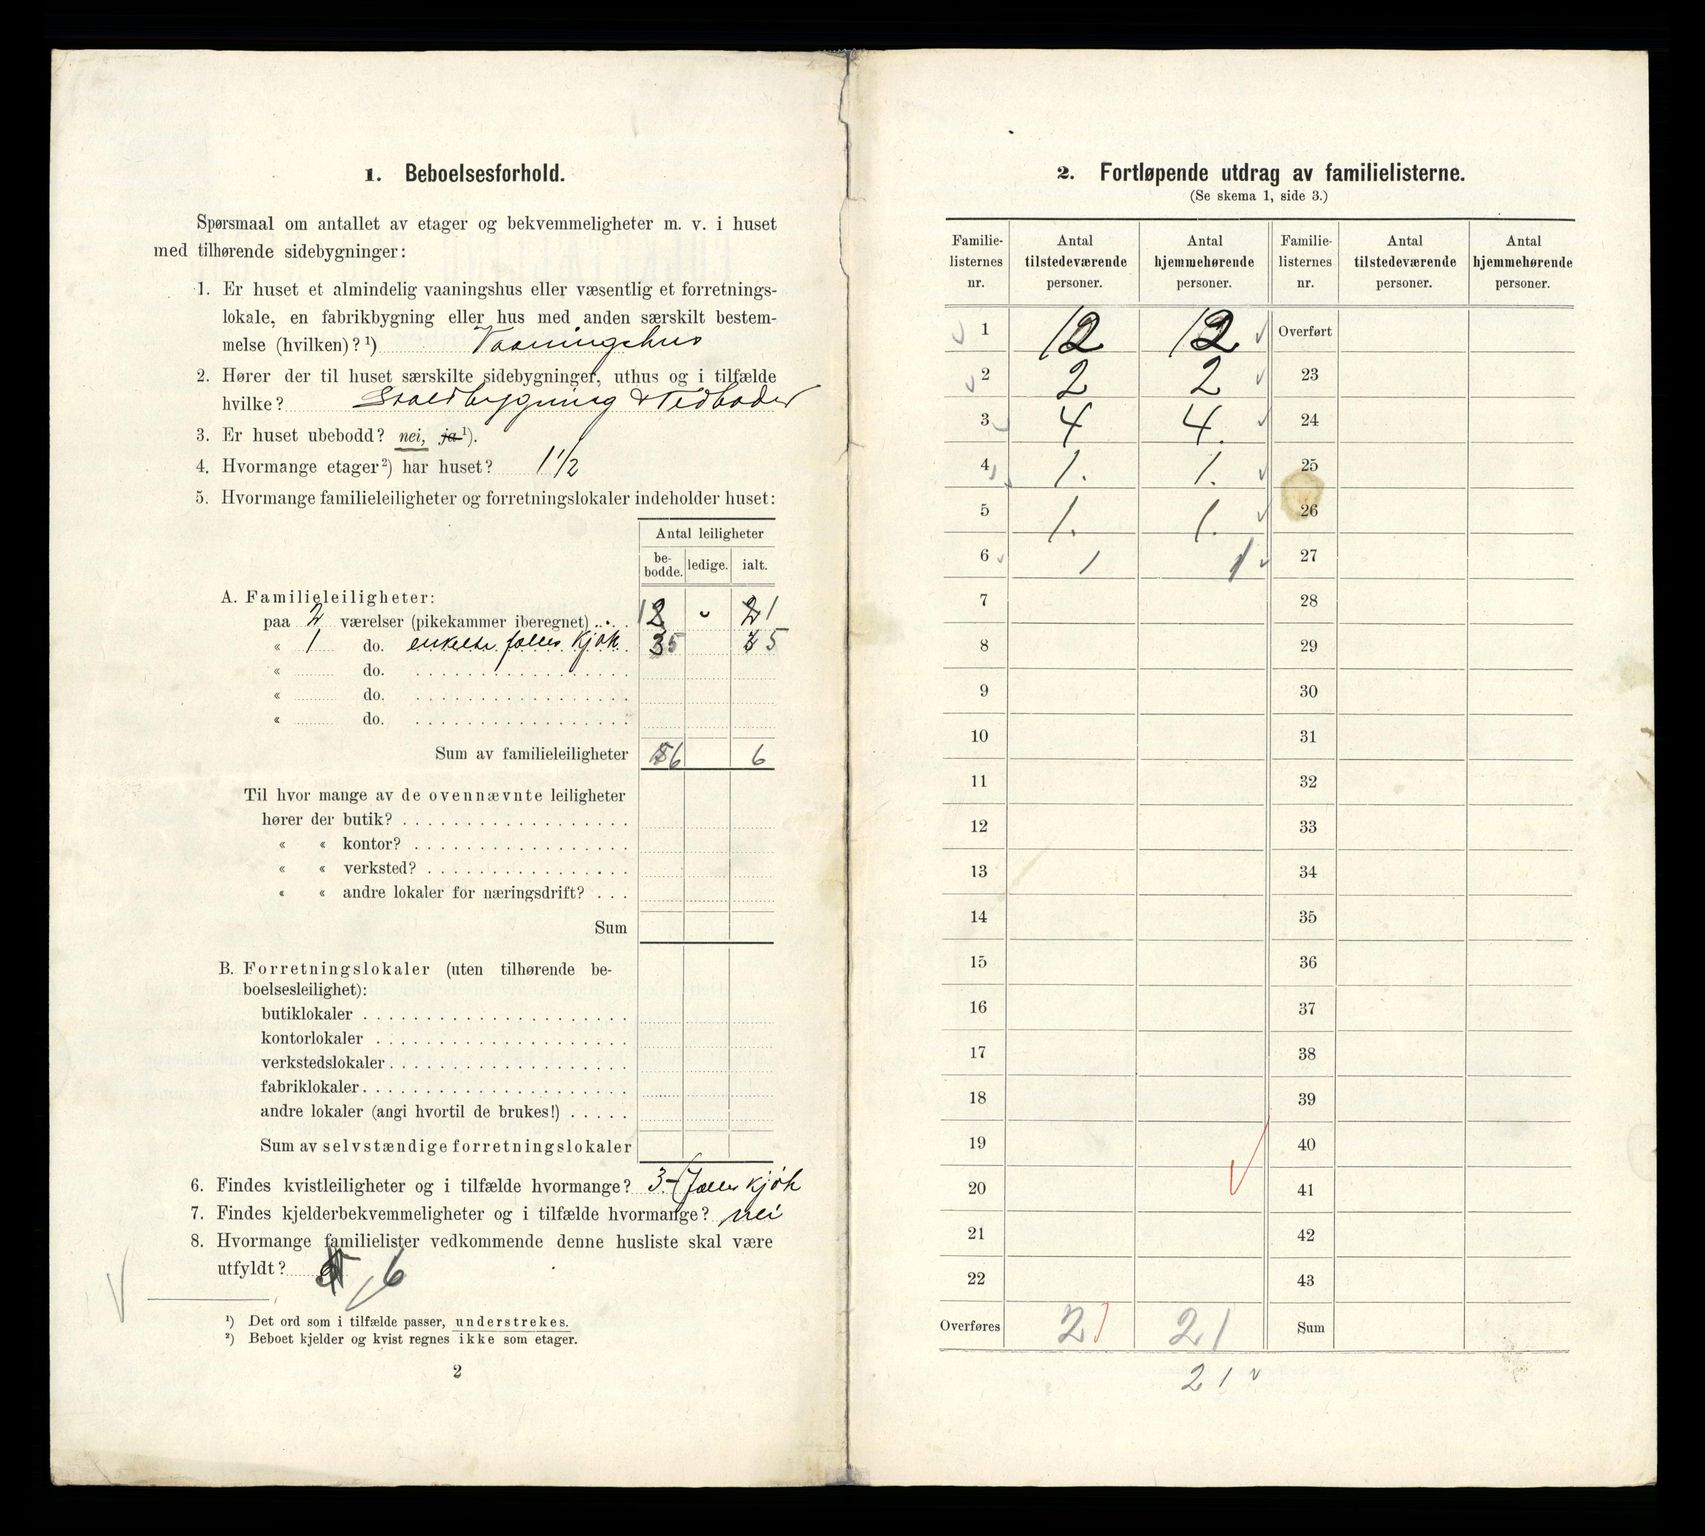 1. Beboelsesforhold.
Spørsmaal om antallet av etager og bekvemmeligheter m. v. i huset
med tilhørende sidebygninger:
1. Er huset et almindelig vaaningshus eller væsentlig et forretnings-
lokale, en fabrikbygning eller hus med anden særskilt bestem-
melse (hvilken)?¹) Vaaningshus
2. Hører der til huset særskilte sidebygninger, uthus og i tilfælde
hvilke? Staldbygning & Vedboder
3. Er huset ubebodd? nei, ja ¹).
4. Hvormange etager²) har huset? 1 1/2
5. Hvormange familieleiligheter og forretningslokaler indeholder huset:
Antal leiligheter
be-bodde. ledige. ialt.
A. Familieleiligheter:
paa 2 værelser (pikekammer iberegnet) . . . 1 " 1
« 1 do. enkelte fælles Kjøk. 5 5
« do.
« do.
« do.
Sum av familieleiligheter 6 6
Til hvor mange av de ovennævnte leiligheter
hører der butik?
« « kontor?
« « verksted?
« « andre lokaler for næringsdrift? . . .
Sum
B. Forretningslokaler (uten tilhørende be-
boelsesleilighet):
butiklokaler
kontorlokaler
verkstedslokaler
fabriklokaler
andre lokaler (angi hvortil de brukes!)
Sum av selvstændige forretningslokaler
6. Findes kvistleiligheter og i tilfælde hvormange? 3 - (fælles kjøk
7. Findes kjelderbekvemmeligheter og i tilfælde hvormange? nei
8. Hvormange familielister vedkommende denne husliste skal være
utfyldt? 6
¹) Det ord som i tilfælde passer, understrekes.
²) Beboet kjelder og kvist regnes ikke som etager.
2
2. Fortløpende utdrag av familielisterne.
(Se skema 1, side 3.)
Familie-listernes nr. Antal tilstedeværende personer. Antal hjemmehørende personer. Familie-listernes nr. Antal tilstedeværende personer. Antal hjemmehørende personer.
1 12 12 Overført
2 2 2 23
3 4 4. 24
4 1. 1. 25
5 1. 1. 26
6 1 1 27
7 28
8 29
9 30
10 31
11 32
12 33
13 34
14 35
15 36
16 37
17 38
18 39
19 40
20 41
21 42
22 43
Overføres 21 21 Sum
21